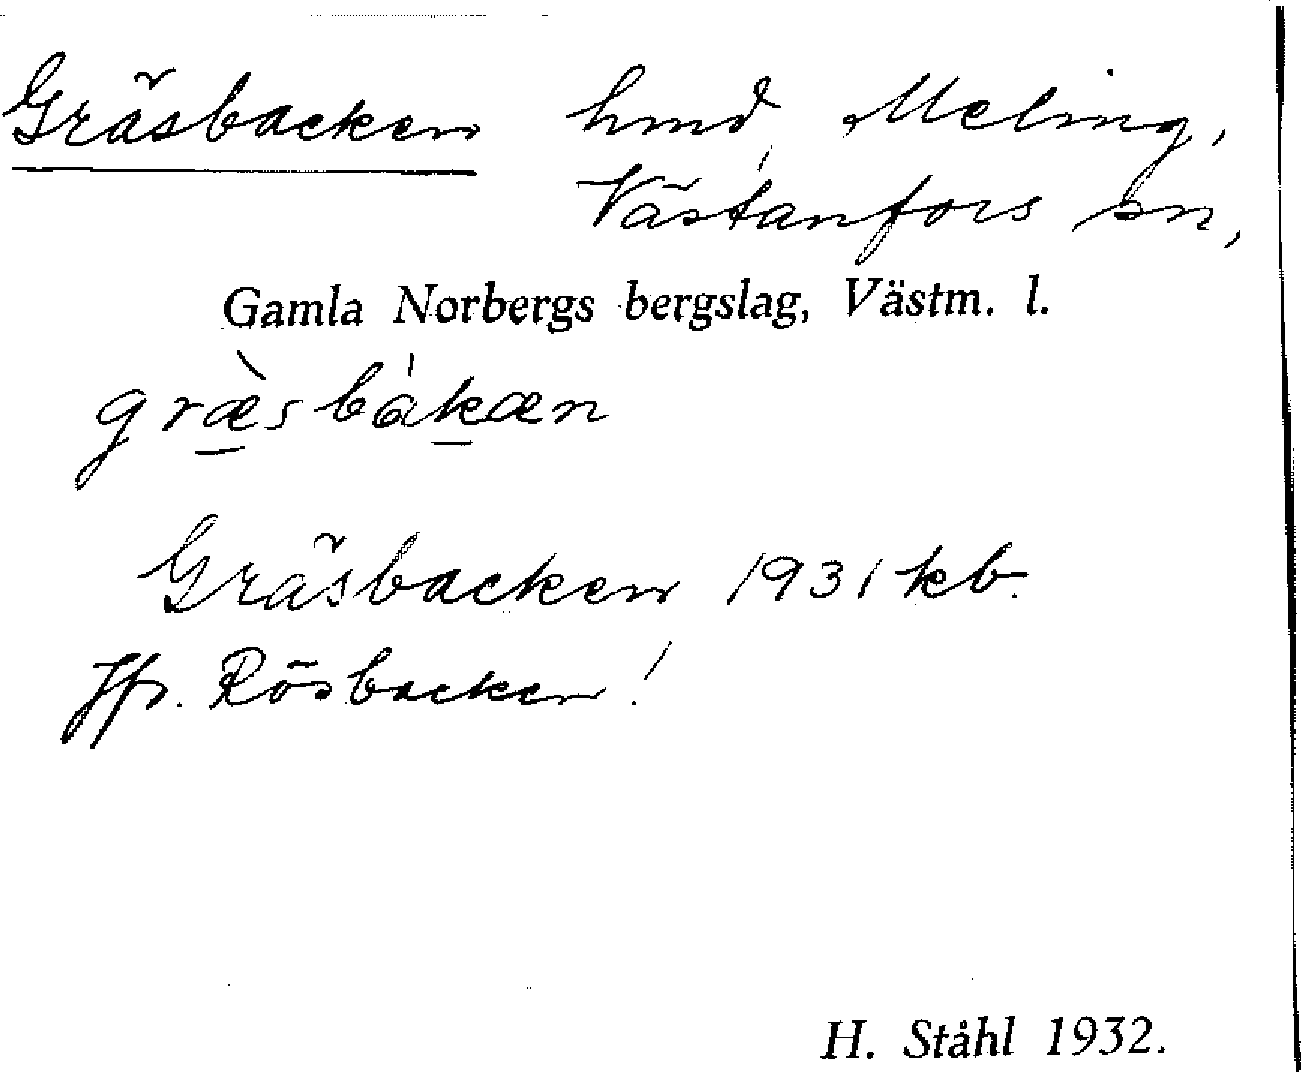 Gräsbacken hmd, Meling,
Västanfors sn,
Gamla Norbergs bergslag, Västm. l.
græ̀sbákæn
Gräsbacken 1931 kb.
Jfr. Rösbacken!
H. Ståhl 1932.